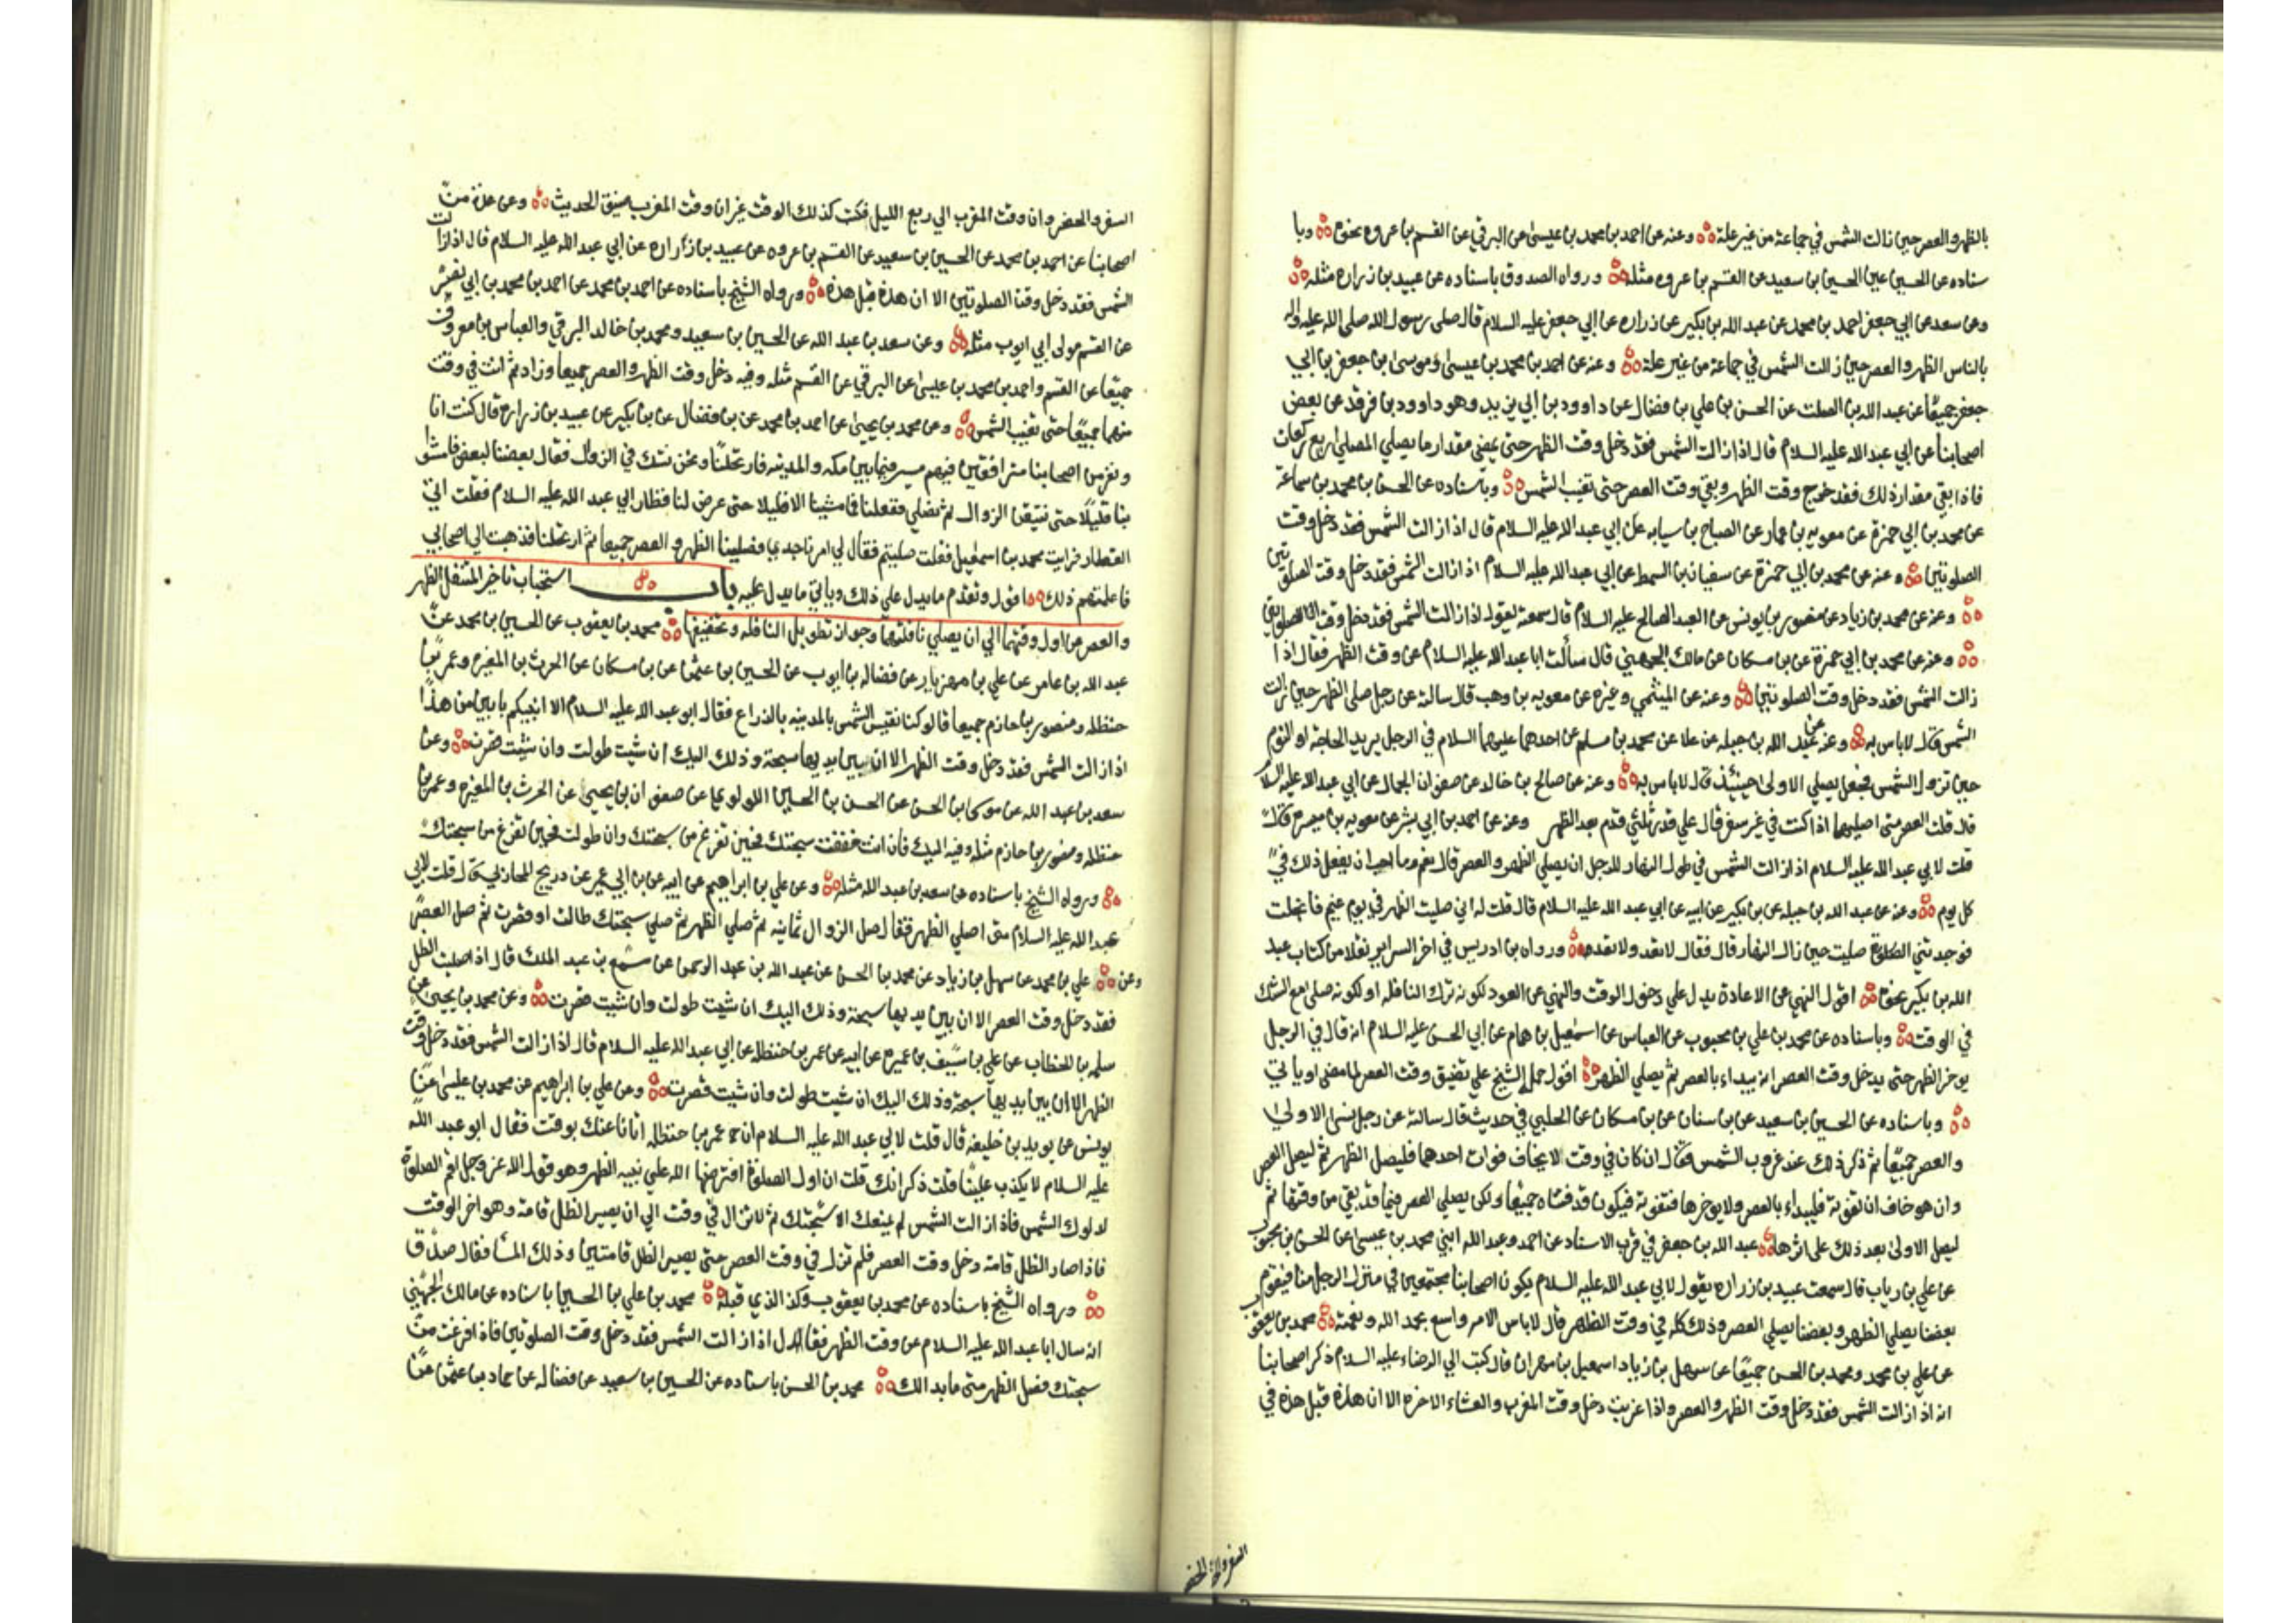 بالظهر والعصر حين زالت الشمس في جماعة من غير علة وعنه عن احمد بن محمد بن عيسى عن البرقي عن القسم بن عروه نحوه وبا
سناده عن الحسين عين الحسين بن سعيد عن القسم بن عروه مثله ورواه الصدوق باسناده عن عبيد بن زراره مثله
وعن سعد عن ابي جعفر احمد بن محمد عن عبد الله بن بكير عن زراره عن ابي جعفر عليه السلام قال صلى رسول الله صلى الله عليه واله
بالناس الظهر والعصر حين زالت الشمس في جماعة من غير علة وعنه عن احمد بن محمد بن عيسى وموسى بن جعفر بن ابي
جعفر جميعًا عن عبد الله بن الصلت عن الحسن بن علي بن فضال عن داوود بن ابي يزيد وهو داوود بن فرقد عن بعض
اصحابنا عن ابي عبد الله عليه السلام قال اذا زالت الشمس فقد دخل وقت الظهر حتى يمضي مقدار ما يصلي المصلي اربع ركعات
فاذا بقي مقدار ذلك فقد خرج وقت الظهر وبقي وقت العصر حتى تغيب الشمس وباسناده عن الحسن بن محمد بن سماعة
عن محمد بن ابي حمزة عن معويه بن عمار عن الصباح بن سيابه عن ابي عبد الله عليه السلام قال اذا زالت الشمس فقد دخل وقت
الصلوتين وعنه عن محمد بن ابي حمزة عن سفيان بن السمط عن ابي عبد الله عليه السلام اذا زالت الشمس فقد دخل وقت الصلوتين
وعنه عن محمد بن زياد عن منصور بن يونس عن العبد الصالح عليه السلام قال سمعته يقول اذا زالت الشمس فقد دخل وقت الصلوتين
وعنه عن محمد بن ابي حمزة عن بن مسكان عن مالك الجهني قال سألت ابا عبد الله عليه السلام عن وقت الظهر فقال اذا
زالت الشمس فقد دخل وقت الصلوتين وعنه عن الميثمي وغيره عن معويه بن وهب قال سالته عن رجل صلى الظهر حين زالت
الشمس قال لا باس به وعنه عن عبد الله بن جبله عن علا عن محمد بن مسلم عن احدهما عليهما السلام في الرجل يريد الحاجة او النوم
حين تزول الشمس فجعل يصلي الاولى حينئذ قال لا باس به وعنه عن صالح بن خالد عن صفوان الجمال عن ابي عبد الله عليه السلام
قال قلت العصر متى اصليها اذا كنت في غير سفر قال على قدر ثلثي قدم بعد الظهر وعنه عن احمد بن ابي بشر عن معويه بن ميسره قال
قلت لابي عبد الله عليه السلام اذا زالت الشمس في طول النهار للرجل ان يصلي الظهر والعصر قال نعم وما احب ان يفعل ذلك في
كل يوم وعنه عن عبد الله بن جبله عن بن بكير عن ابيه عن ابي عبد الله عليه السلام قال قلت له اني صليت الظهر في يوم غيم فانجلت
فوجدتني صليت حين زال النهار قال فقال لا تعد ولا تعد ورواه بن ادريس في اخر السراير نقلا من كتاب عبد
الله بن بكير نحوه اقول النهي عن الاعادة يدل على دخول الوقت والنهي عن العود لكونه ترك النافله او لكونه صلى مع الشك
في الوقت وباسناده عن محمد بن علي بن محبوب عن العباس عن اسمعيل بن همام عن ابي الحسن عليه السلام انه قال في الرجل
يوخر الظهر حتى يدخل وقت العصر انه يبداء بالعصر ثم يصلي الظهر اقول حمله الشيخ على تضيق وقت العصر لما مضى او يأتي
وباسناده عن الحسين بن سعيد عن بن سنان عن بن مسكان عن الحلبي في حديث قال سالته عن رجل نسي الاولى
والعصر جميعًا ثم ذكر ذلك عند غروب الشمس فقال ان كان في وقت لا يخاف فوات احدهما فليصل الظهر ثم ليصل العصر
وان هو خاف ان تفوته فليبداء بالعصر ولا يوخرها فتفوته فيكون قد فتتاه جميعًا ولكن يصلي العصر فيما قد بقي من وقتها ثم
ليصل الاولى بعد ذلك على اثرها عبد الله بن جعفر في قرب الاسناد عن احمد وعبد الله ابني محمد بن عيسى عن الحسن بن محبوب
عن علي بن رياب قال سمعت عبيد بن زراره يقول لابي عبد الله عليه السلام يكون اصحابنا مجتمعين في منزل الرجل منا فيقوم
بعضنا يصلي الظهر وبعضنا يصلي العصر وذلك كله في وقت الظهر قال لا باس الامر واسع بحمد الله ونعمته محمد بن يعقوب
عن علي بن محمد ومحمد بن الحسن جميعًا عن سهل بن زياد اسمعيل بن مهران قال كتبت الى الرضاء عليه السلام ذكر اصحابنا
انه اذا زالت الشمس فقد دخل وقت الظهر والعصر واذا غربت دخل وقت المغرب والعشاء الاخره الا ان هذه قبل هذه في
السفر والحضر
السفر والحضر وان وقت المغرب الى ربع الليل فكتب كذلك الوقت غير ان وقت المغرب ضيق الحديث وعن عدة من
اصحابنا عن احمد بن محمد عن الحسين بن سعيد عن القسم بن عروه عن عبيد بن زراره عن ابي عبد الله عليه السلام قال اذا زالت
الشمس فقد دخل وقت الصلوتين الا ان هذه قبل هذه ورواه الشيخ باسناده عن احمد بن محمد عن احمد بن محمد بن ابي نصر
عن القسم مولى ابي ايوب مثله وعن سعد بن عبد الله عن الحسين بن سعيد ومحمد بن خالد البرقي والعباس بن معروف
جميعًا عن القسم واحمد بن محمد بن عيسى عن البرقي عن القسم مثله وفيه دخل وقت الظهر والعصر جميعا وزاد ثم انت في وقت
منهما جميعًا حتى تغيب الشمس وعن محمد بن يحيى عن احمد بن محمد عن بن فضال عن بن بكير عن عبيد بن زراره قال كنت انا
ونفر من اصحابنا مترافقين فيهم ميسر فيما بين مكه والمدينه فارتحلنا ونحن نشك في الزوال فقال بعضنا لبعض فامشوا
بنا قليلا حتى نتيقن الزوال ثم نصلي ففعلنا فما مشينا الا قليلا حتى عرض لنا قطار ابي عبد الله عليه السلام فقلت اتى
القطار فرايت محمد بن اسمعيل فقلت صليتم فقال لي امرنا جدي فصلينا الظهر والعصر جميعا ثم ارتحلنا فذهبت الى اصحابي
فاعلمتهم ذلك اقول وتقدم ما يدل على ذلك وياتي ما يدل عليه باب استحباب تاخير المتنفل الظهر
والعصر من اول وقتهما الى ان يصلي نافلتهما وجواز تطويل النافله وتخفيفها محمد بن يعقوب عن الحسين بن محمد عن
عبد الله بن عامر عن علي بن مهزيار عن فضاله بن ايوب عن الحسين بن عثمن عن بن مسكان عن الحرث بن المغيره وعمر بن
حنظله ومنصور بن حازم جميعا قالو كنا نقيس الشمس بالمدينه بالذراع فقال ابو عبد الله عليه السلام الا انبيكم بابين من هذا
اذا زالت الشمس فقد دخل وقت الظهر الا ان بين يديها سبحة وذلك اليك ان شيت طولت وان شيت قصرت وعن
سعد بن عبد الله عن موسى بن الحسن عن الحسن بن الحسين اللولوي عن صفوان بن يحيى عن الحرث بن المغيره وعمر بن
حنظله ومنصور بن حازم مثله وفيه اليك فان انت خففت سبحتك فحين تفرغ من سبحتك وان طولت فحين تفرغ من سبحتك
ورواه الشيخ باسناده عن سعد بن عبد الله مثله وعن علي بن ابراهيم عن ابيه عن بن ابي عمير عن ذريح المحاربي قال قلت لابي
عبد الله عليه السلام متى اصلي الظهر فقال صل الزوال ثمانيه ثم صلي الظهر ثم صلي سبحتك طالت او قصرت ثم صل العصر
وعن علي بن محمد عن سهل بن زياد عن محمد بن الحسن عن عبد الله بن عبد الرحمن عن مسمع بن عبد الملك قال اذا صليت الظهر
فقد دخل وقت العصر الا ان بين يديها سبحة وذلك اليك ان شيت طولت وان شيت قصرت وعن محمد بن يحيى عن
سلمه بن الخطاب عن علي بن سيف بن عميره عن ابيه عن عمر بن حنظله عن ابي عبد الله عليه السلام قال اذا زالت الشمس فقد دخل وقت
الظهر الا ان بين يديها سبحة وذلك اليك ان شيت طولت وان شيت قصرت وعن علي بن ابراهيم عن محمد بن عيسى عن
يونس عن يزيد بن خليفه قال قلت لابي عبد الله عليه السلام ان عمر بن حنظله اتانا عنك بوقت فقال ابو عبد الله
عليه السلام لا يكذب علينا قلت ذكر انك قلت ان اول الصلوة افترضها الله على نبيه الظهر وهو قول الله عز وجل اقم الصلوة
لدلوك الشمس فاذا زالت الشمس لم يمنعك الا سبحتك ثم لا تزال في وقت الى ان يصير الظل قامة وهو اخر الوقت
فاذا صار الظل قامة دخل وقت العصر فلم تزل في وقت العصر حتى يصير الظل قامتين وذلك المسا فقال صدق
ورواه الشيخ باسناده عن محمد بن يعقوب وكذ الذي قبله محمد بن علي بن الحسين باسناده عن مالك الجهني
انه سال ابا عبد الله عليه السلام عن وقت الظهر فقال اذا زالت الشمس فقد دخل وقت الصلوتين فاذا فرغت من
سبحتك فصل الظهر متى ما بدا لك محمد بن الحسن باسناده عن الحسين بن سعيد عن فضاله عن حماد بن عثمن عن